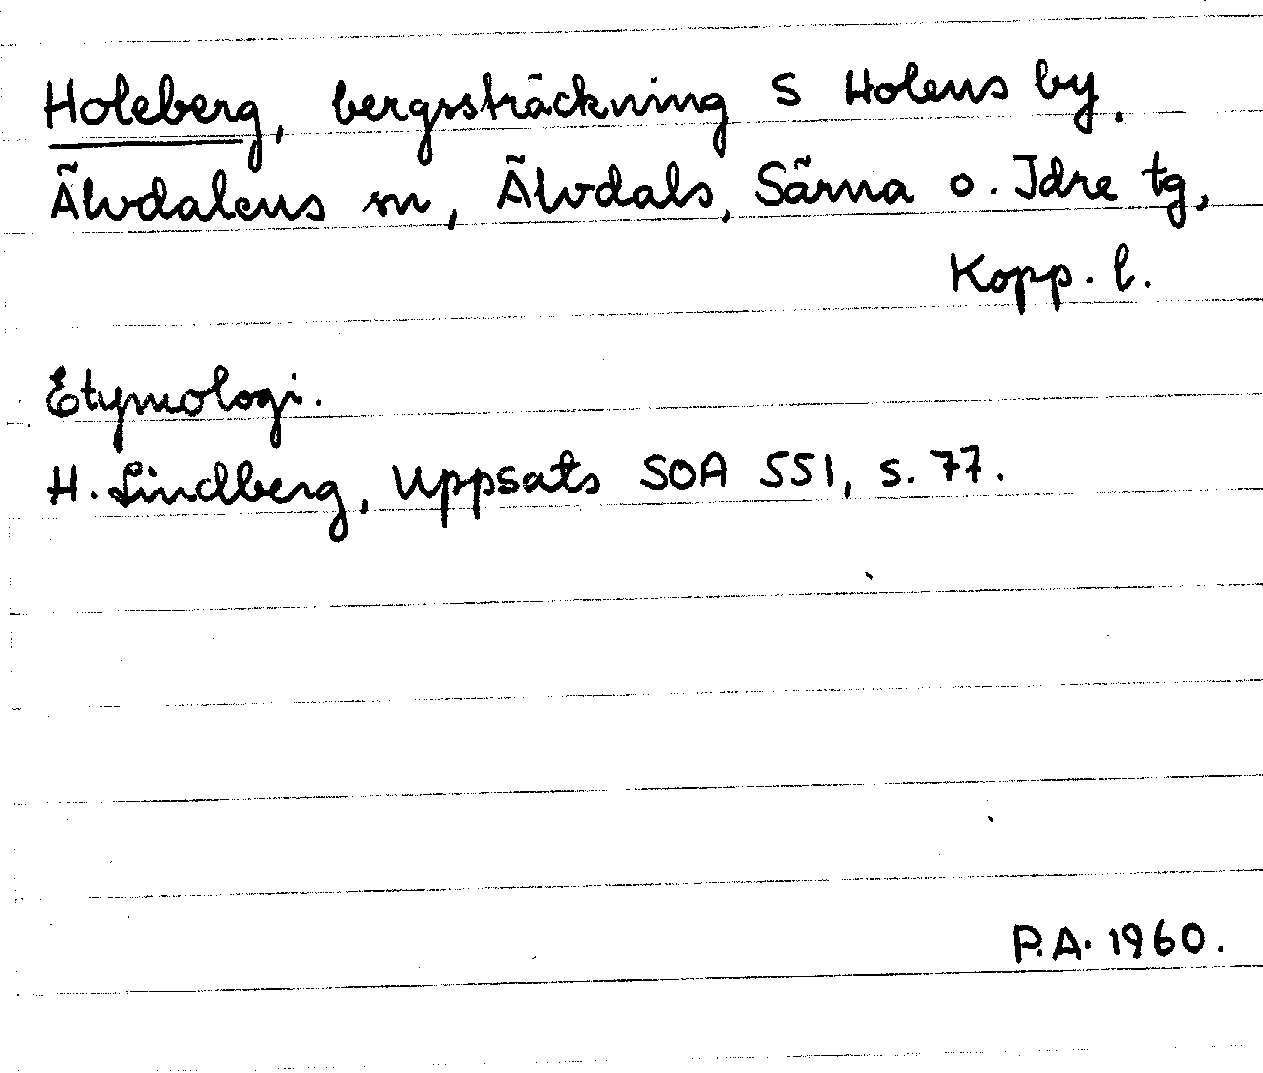 Holeberg, bergssträckning S Holens by.
Älvdalens sn, Älvdals, Särna o. Idre tg,
Kopp. l.
Etymologi.
H. Lindberg, Uppsats SOA 551, s. 77.
P.A. 1960.